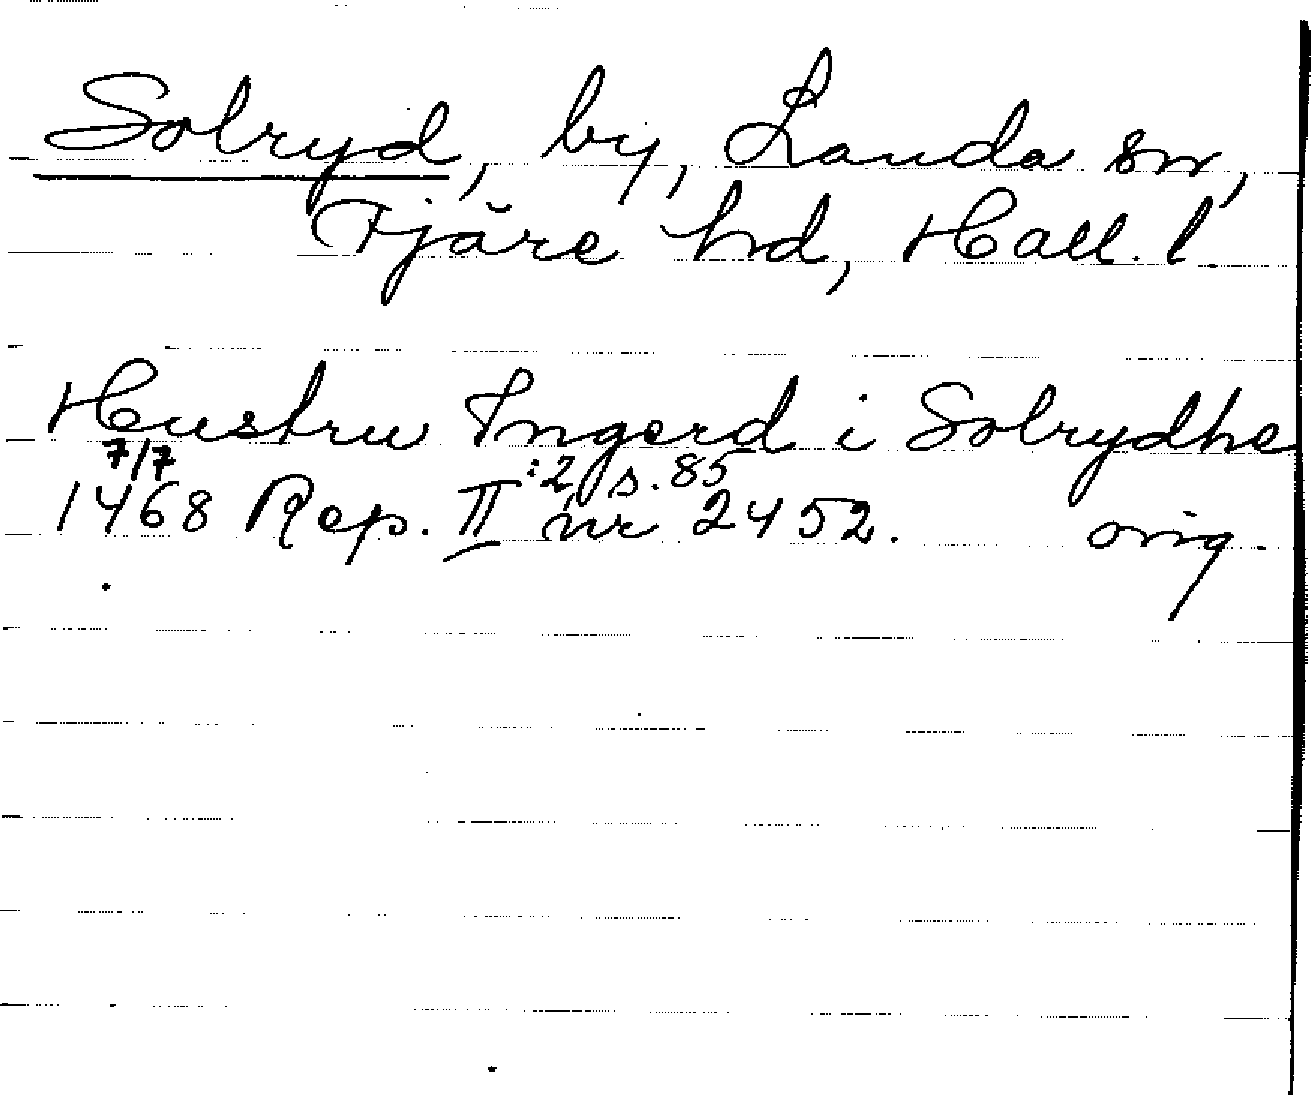 Solryd, by, Landa sn,
Fjäre hd, Hall. l.
Hustru Ingerd i Solrydhe
7/7
1468 Rep. II :2, s. 85 nr 2452. orig.